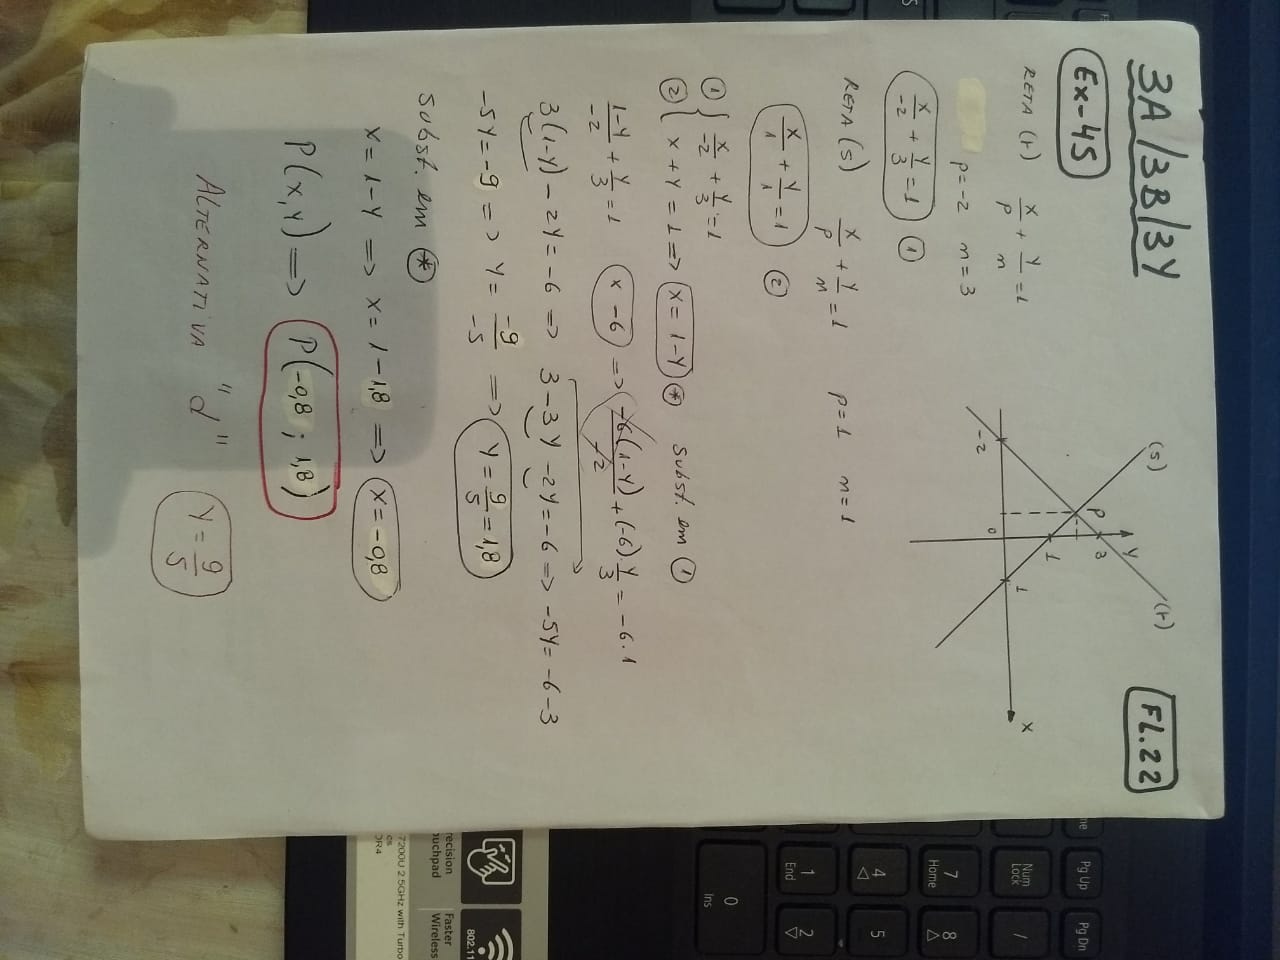 3A/3B/3Y
FL.22
Ex-45
(s)
(r)
Y
P
3
1
1
X
-2
0
RETA (r) X/P + Y/n = 1
P=-2 n=3
X/-2 + Y/3 = 1 ①
RETA (s) X/P + Y/n = 1 P=1 n=1
X/1 + Y/1 = 1 ②
① { X/-2 + Y/3 = 1
② { X + Y = 1 => X = 1-Y ⊛ SUBST. em ①
1-Y/-2 + Y/3 = 1 x -6 => -6(1-Y)/-2 + (-6).Y/3 = -6.1
3(1-Y) - 2Y = -6 => 3-3Y -2Y=-6 => -5Y= -6-3
-5Y=-9 => Y= -9/-5 => Y= 9/5 = 1,8
SUBST. em ⊛
X=1-Y => X= 1-1,8 => X=-0,8
P(X,Y) => P(-0,8 ; 1,8)
ALTERNATIVA "d" Y= 9/5
Pg Up
Pg Dn
Num
Lock
/
7
Home
8
4
5
1
End
2
0
Ins
802.11
Faster
Wireless
7200U 2.5GHz with Turbo